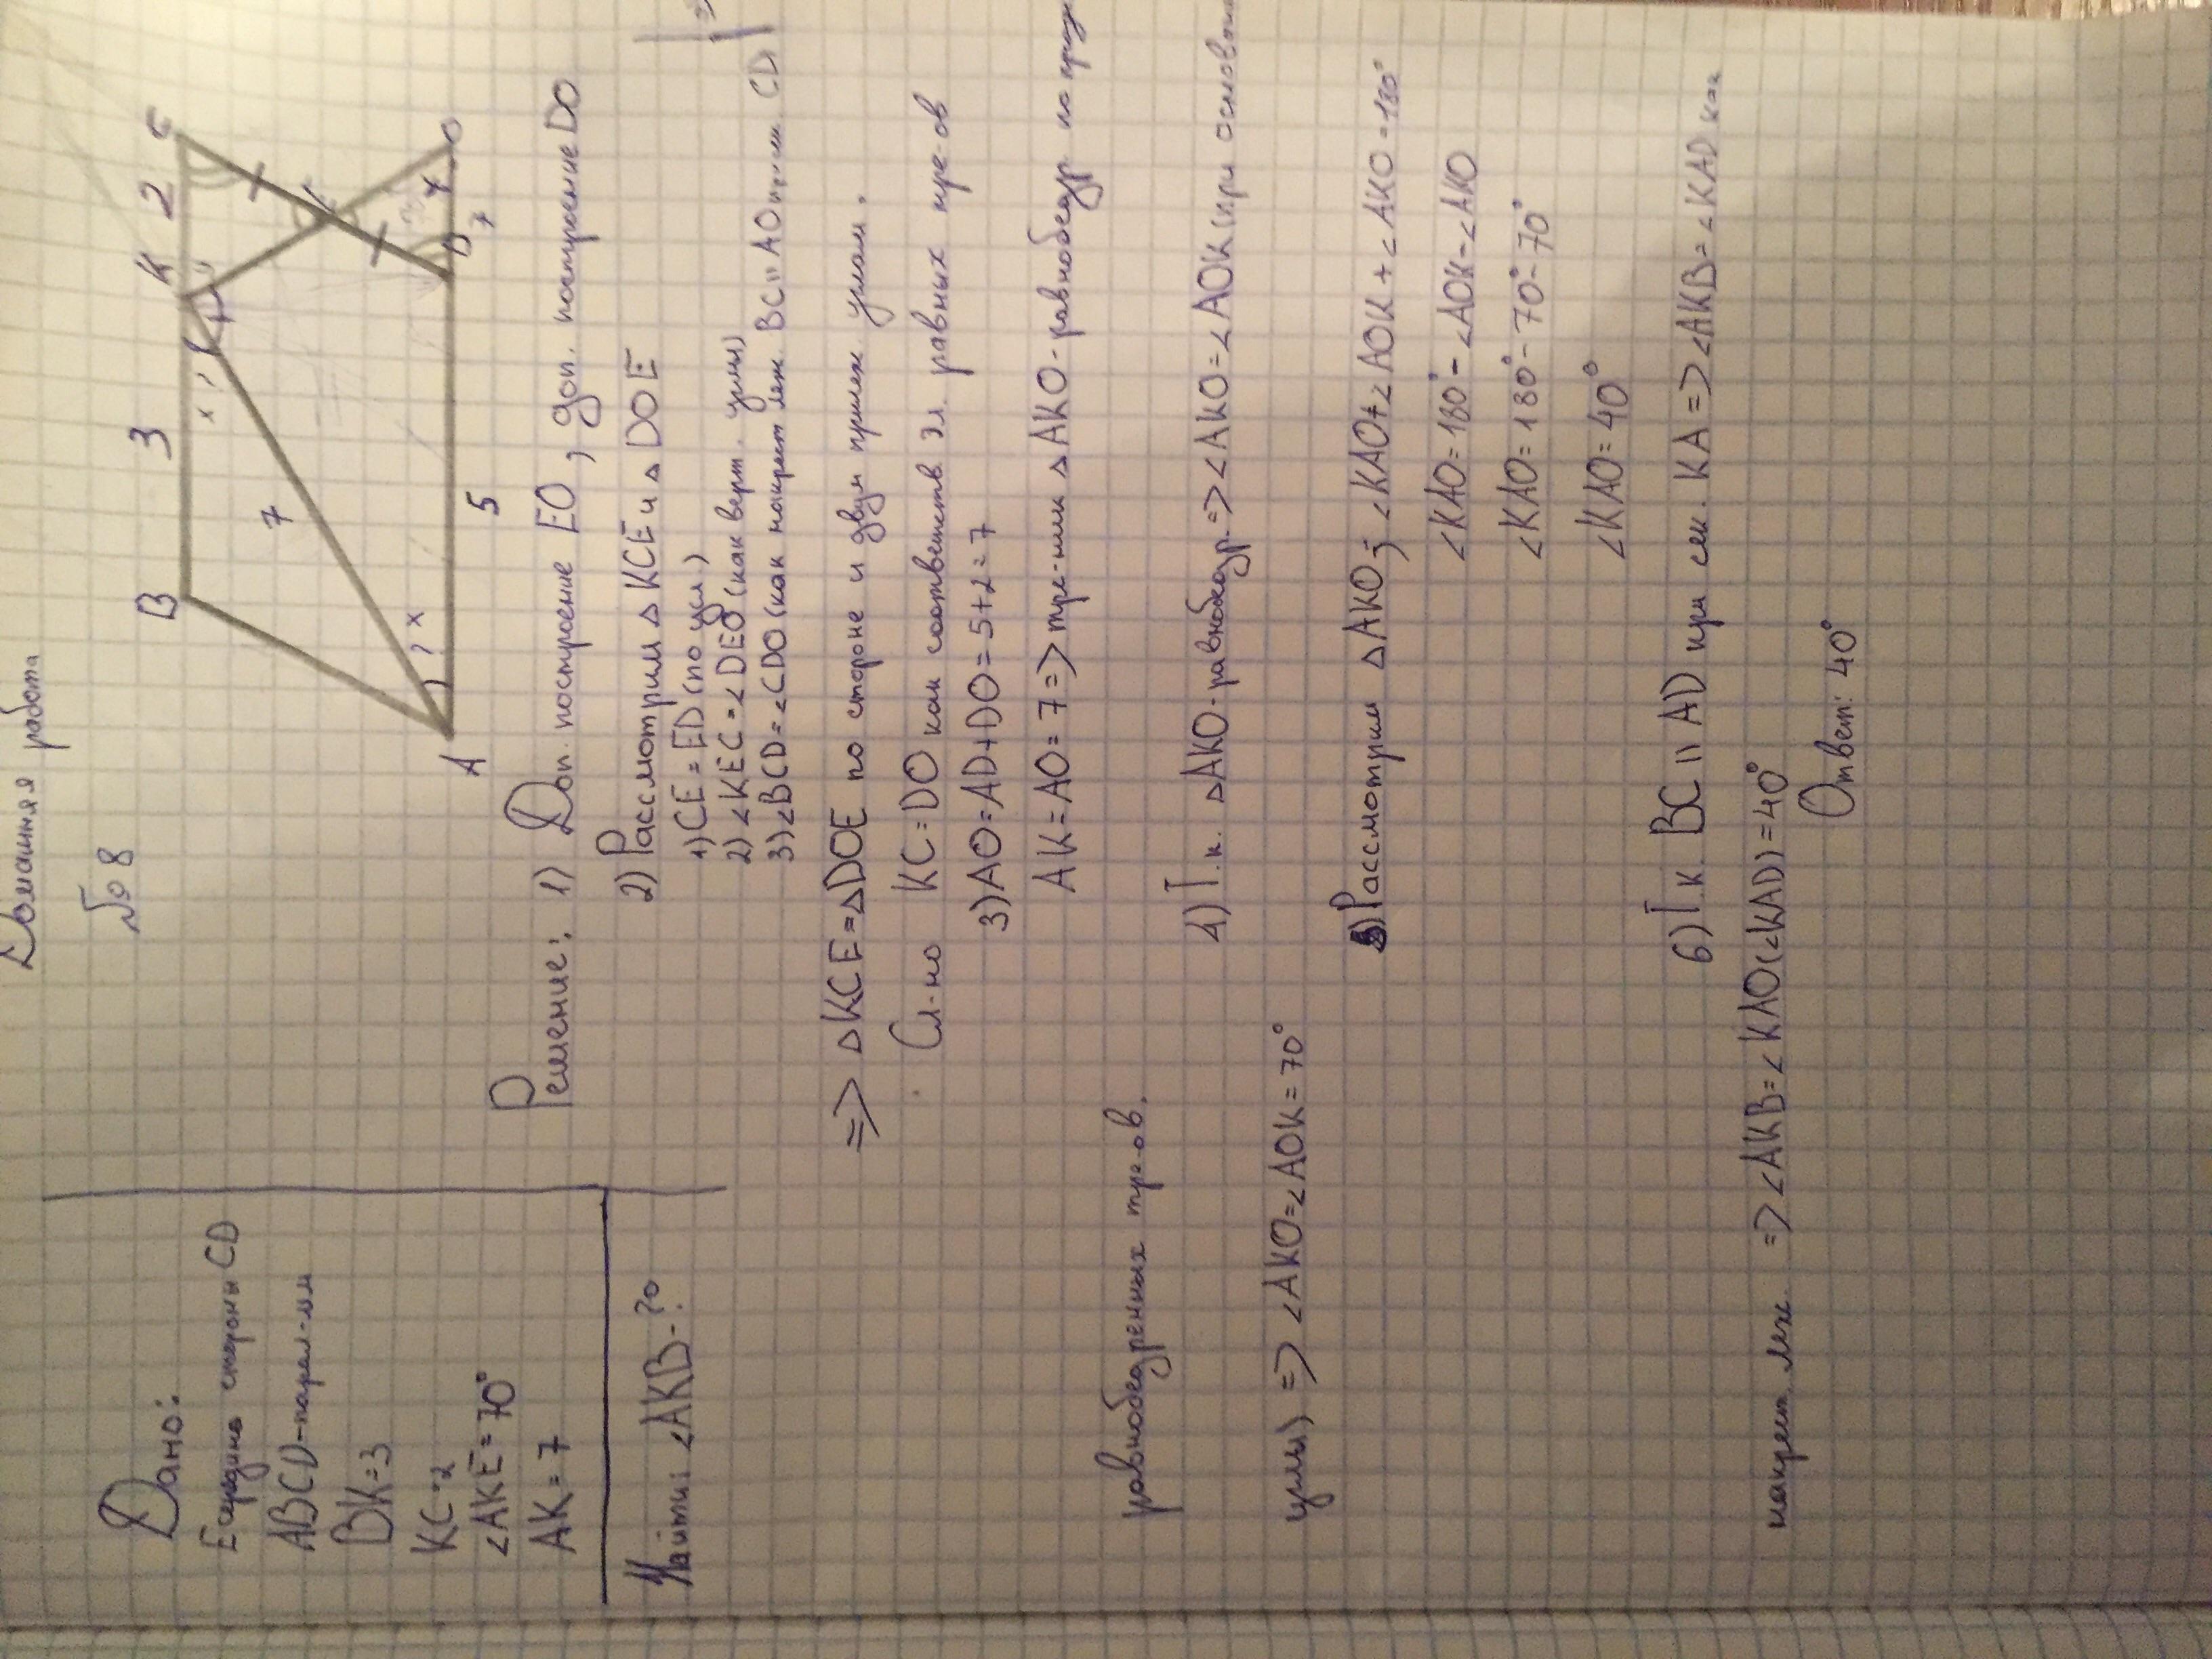 Домашняя работа
№8
Дано:
E середина стороны CD
ABCD-парал-мм
BK=3
KC=2
<AKE=70°
AK=7
Найти: <AKB-?
B 3 K 2 C
7
A 5 D 7 O
Решение: 1) Доп. построение EO, доп. построение DO
2) Рассмотрим △KCE и △DOE
1) CE=ED (по усл.)
2) <KEC=<DEO (как верт. углы)
3) <BCD=<CDO (как накрест леж. BC॥AO CD
=> △KCE=△DOE по стороне и двум прилеж. углам.
Сл-но KC=DO как соответств. эл. равных тре-ов
3) AO=AD+DO=5+2=7
AK=AO=7=> тре-ник △AKO-равнобедр по
равнобедренных тре-ов.
4) Т.к. △AKO-равнобедр.=> <AKO=<AOK (при
углы) => <AKO=<AOK=70°
5) Рассмотрим △AKO; <KAO+<AOK+<AKO=180°
<KAO=180°-<AOK-<AKO
<KAO=180°-70°-70°
<KAO=40°
6) Т.к. BC॥AD при сек. KA => <AKB=<KAD как
накрест леж. => <AKB=<KAO(<KAD)=40°
Ответ: 40°